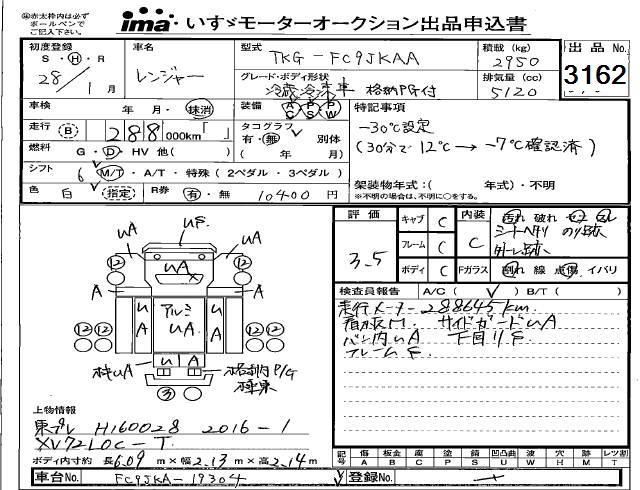 ㊟赤太枠内は必ず
ボールペンで
ご記入下さい。
ima いすゞモーターオークション出品申込書
初度登録
S・H・R
28/1月
車名
レンジャー
型式 TKG-FC9JKAA
積載(kg)
2950
出品No.
3162
グレード・ボディ形状
冷蔵冷凍車 格納PG付
排気量(cc)
5120
車検 年 月・抹消
装備 AC PS PW
特記事項
-30℃設定
(30分で 12℃→-7℃確認済)
走行 B 288000km「 」
タコグラフ
有・無 別体
( 年 月)
燃料 G・D・HV 他( )
シフト 6 M/T・A/T・特殊(2ペダル・3ペダル)
架装物年式:( 年式)・不明
※不明の場合は、不明に○をする。
色 白 (指定) R券 有・無 10400円
評価
3.5
キャブ C
フレーム C
ボディ C
内装
C
汚れ 破れ
シートヘタリ のり跡
外し跡
Fガラス 割れ 線 点傷 イバリ
検査員報告 A/C( ✓ ) B/T( )
走行メーター288645km
サイドガードuA
バン内uA 下回りF
フレームF
uF
uA uA
uA
⑫ ⑫
A A
uA アルミ uA uA
⑫⑫ ⑫⑫
u A
枠uA
格納P/G
③
上物情報
東プレ H160028 2016-1
XV72LOC-T
ボディ内寸約 長6.09 m×幅2.13 m×高2.14 m
記号 傷A 板金B 腐C 塗P 錆S 凹U 凸凹曲W 汚H 穴X 跡M レツ割T
車台No. FC9JKA-19304
登録No.